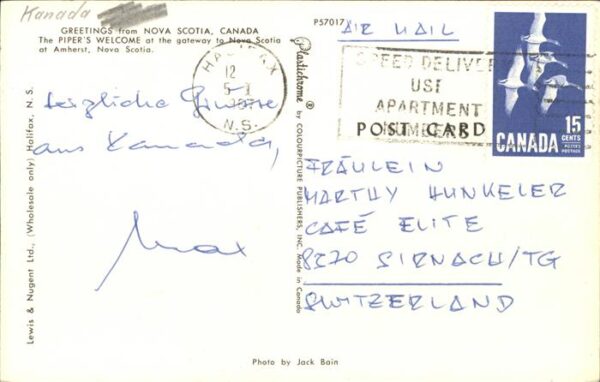 Kanada
GREETINGS from NOVA SCOTIA, CANADA
The PIPER'S WELCOME at the gateway to Nova Scotia
at Amherst, Nova Scotia.
Herzliche Grüsse
aus Kanada,
Max
Lewis & Nugent Ltd., (Wholesale only) Halifax, N. S.
Plastichrome ® by COLOURPICTURE PUBLISHERS, INC. Made in Canada
P57017
AIR MAIL
HALIFAX
12
N.S.
SPEED DELIVERY
USE
APARTMENT
NUMBERS
POST CARD
CANADA 15
CENTS
POSTES
POSTAGE
FRÄULEIN
MARTHY HUNKELER
CAFÉ ELITE
8370 SIRNACH/TG
SWITZERLAND
Photo by Jack Bain